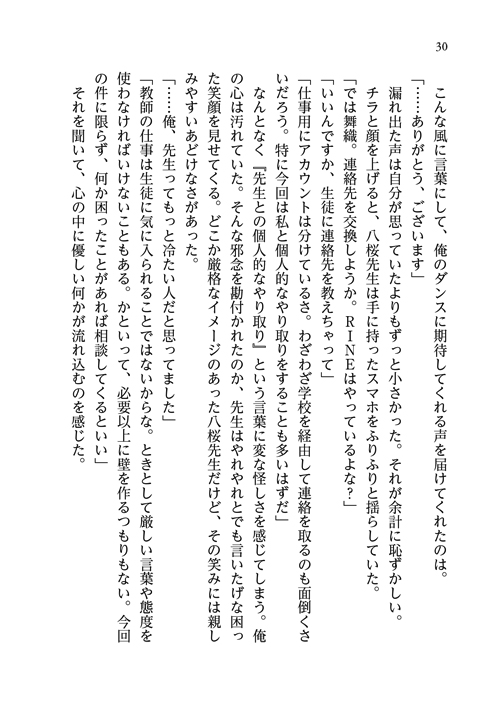 30
こんな風に言葉にして、俺のダンスに期待してくれる声を届けてくれたのは。
「……ありがとう、ございます」
漏れ出た声は自分が思っていたよりもずっと小さかった。それが余計に恥ずかしい。
チラと顔を上げると、八桜先生は手に持ったスマホをふりふりと揺らしていた。
「では舞織。連絡先を交換しようか。ＲＩＮＥはやっているよな？」
「いいんですか、生徒に連絡先を教えちゃって」
「仕事用にアカウントは分けているさ。わざわざ学校を経由して連絡を取るのも面倒くさ
いだろう。特に今回は私と個人的なやり取りをすることも多いはずだ」
なんとなく『先生との個人的なやり取り』という言葉に変な怪しさを感じてしまう。俺
の心は汚れていた。そんな邪念を勘付かれたのか、先生はやれやれとでも言いたげな困っ
た笑顔を見せてくる。どこか厳格なイメージのあった八桜先生だけど、その笑みには親し
みやすいあどけなさがあった。
「……俺、先生ってもっと冷たい人だと思ってました」
「教師の仕事は生徒に気に入られることではないからな。ときとして厳しい言葉や態度を
使わなければいけないこともある。かといって、必要以上に壁を作るつもりもない。今回
の件に限らず、何か困ったことがあれば相談してくるといい」
それを聞いて、心の中に優しい何かが流れ込むのを感じた。